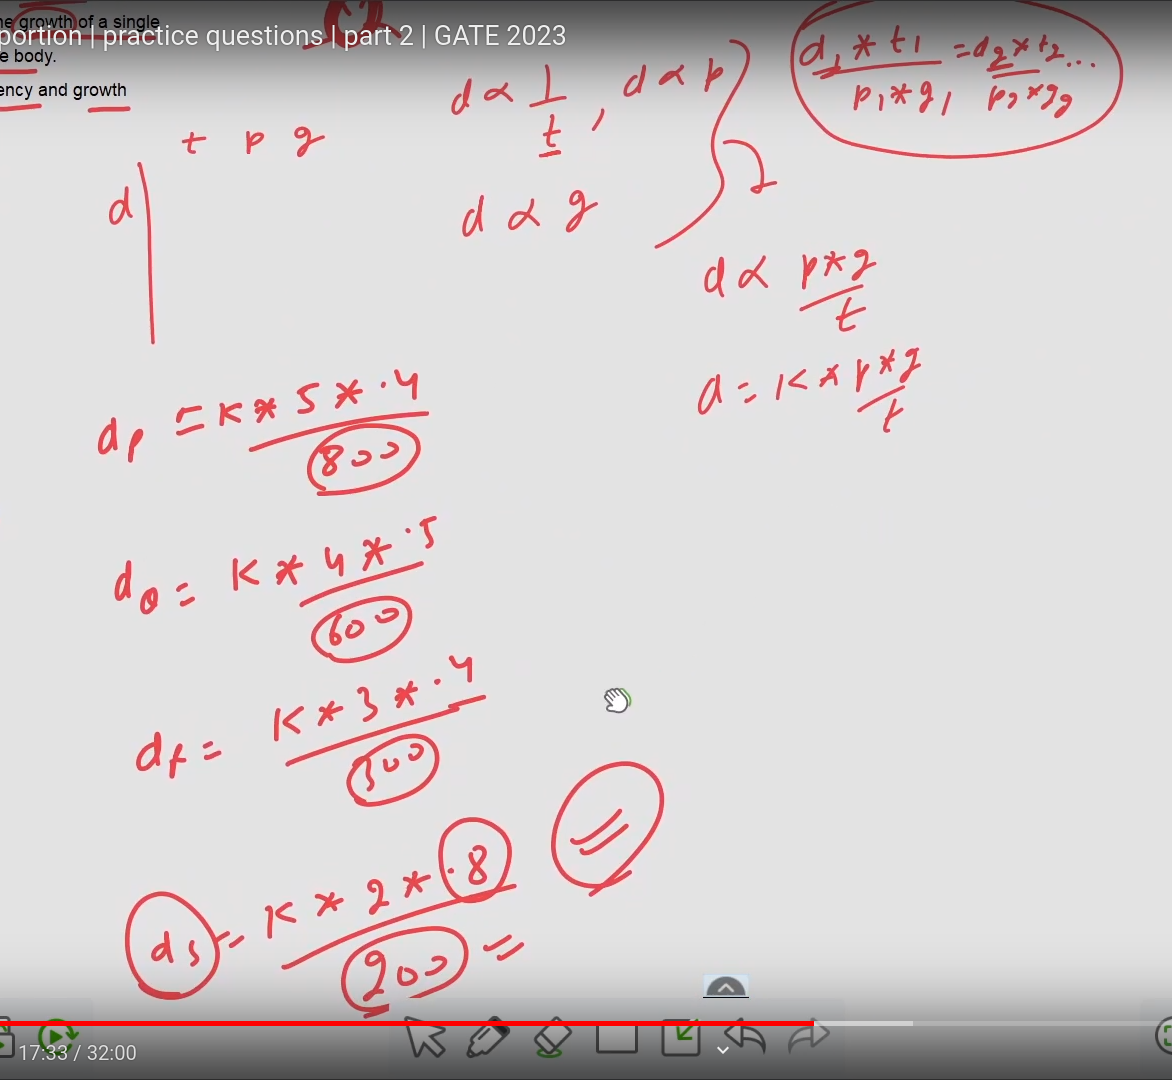 he growth of a single
portion | practice questions | part 2 | GATE 2023
e body.
ency and growth
d ∝ 1/t , d ∝ p
d1 * t1 / p1 * g1 = d2 * t2 / p2 * g2 ...
t p g
d
d ∝ g
d ∝ p * g / t
d = K * p * g / t
dp = K * 5 * .4 / 800
dQ = K * 4 * .5 / 600
dr = K * 3 * .4 / 300
ds = K * 2 * .8 / 200 =
17:33 / 32:00